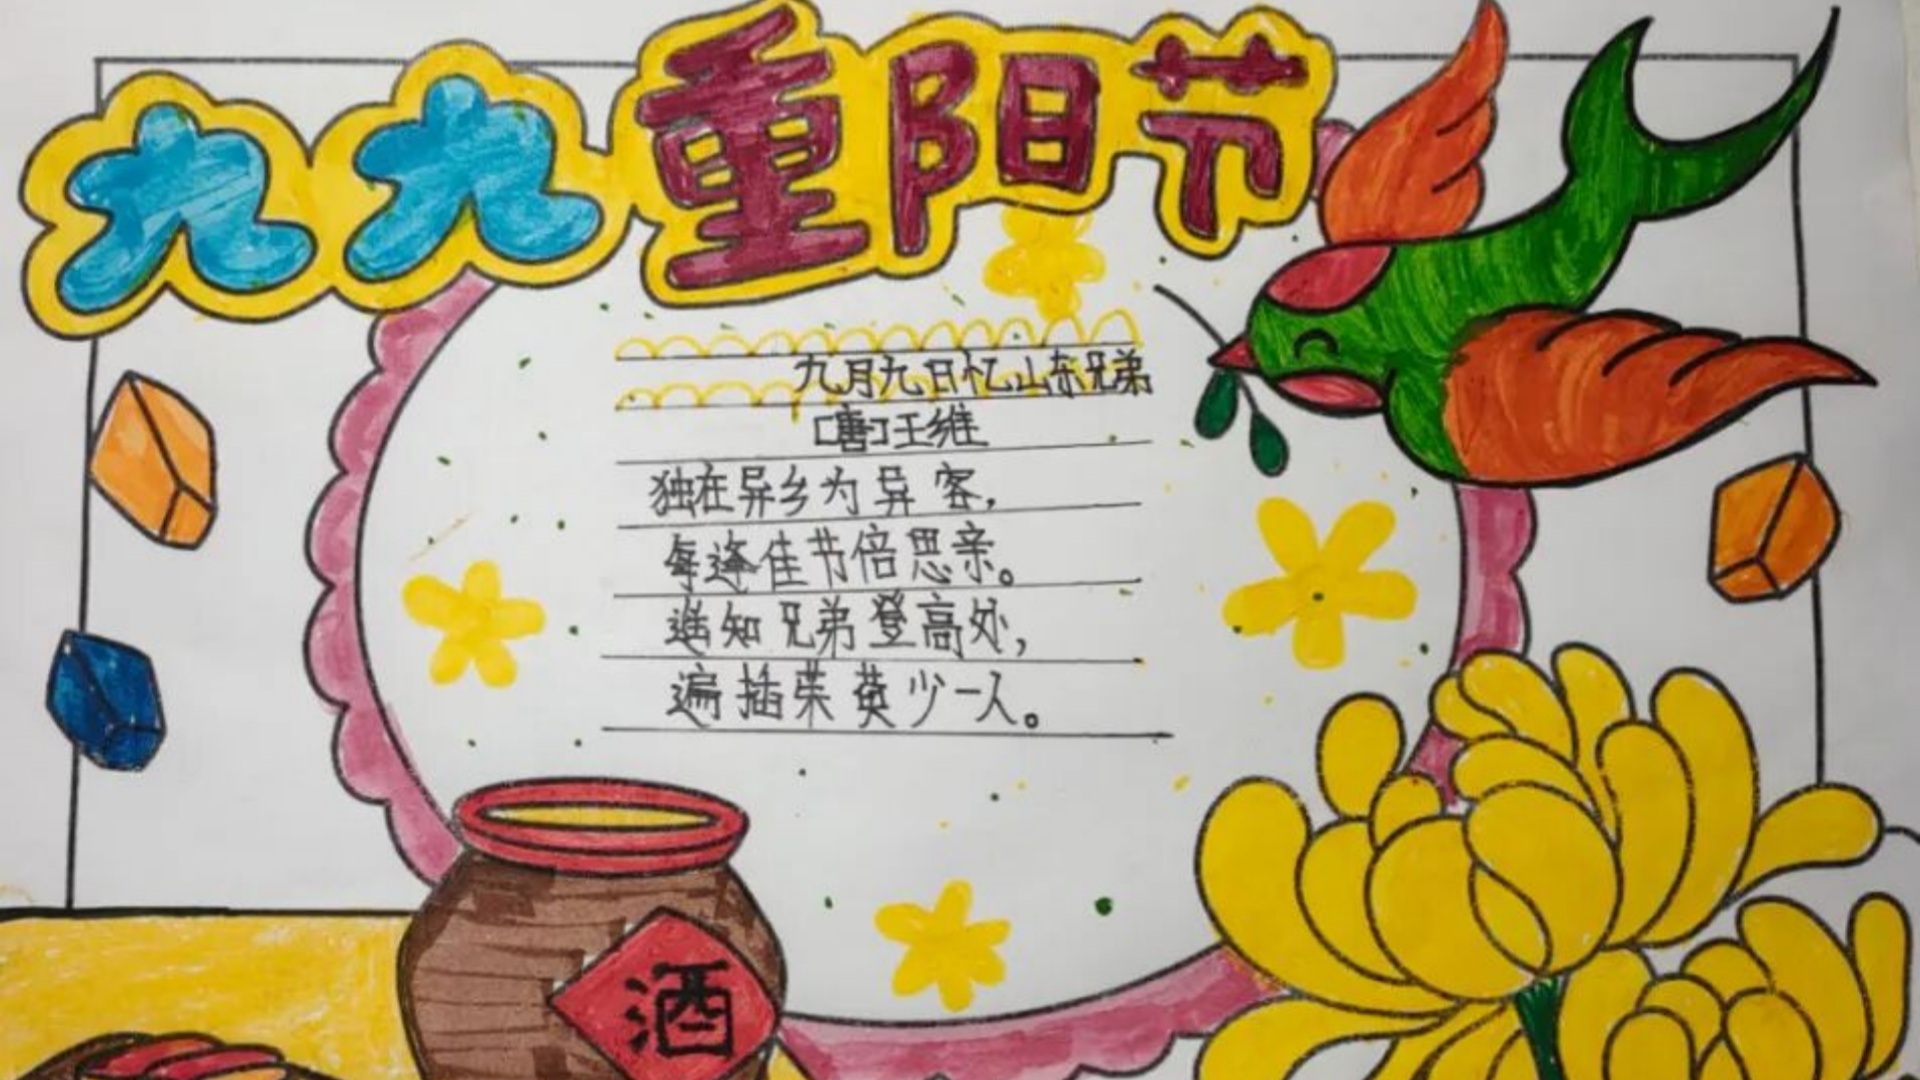 九九重阳节
九月九日忆山东兄弟
[唐]王维
独在异乡为异客，
每逢佳节倍思亲。
遥知兄弟登高处，
遍插茱萸少一人。
酒